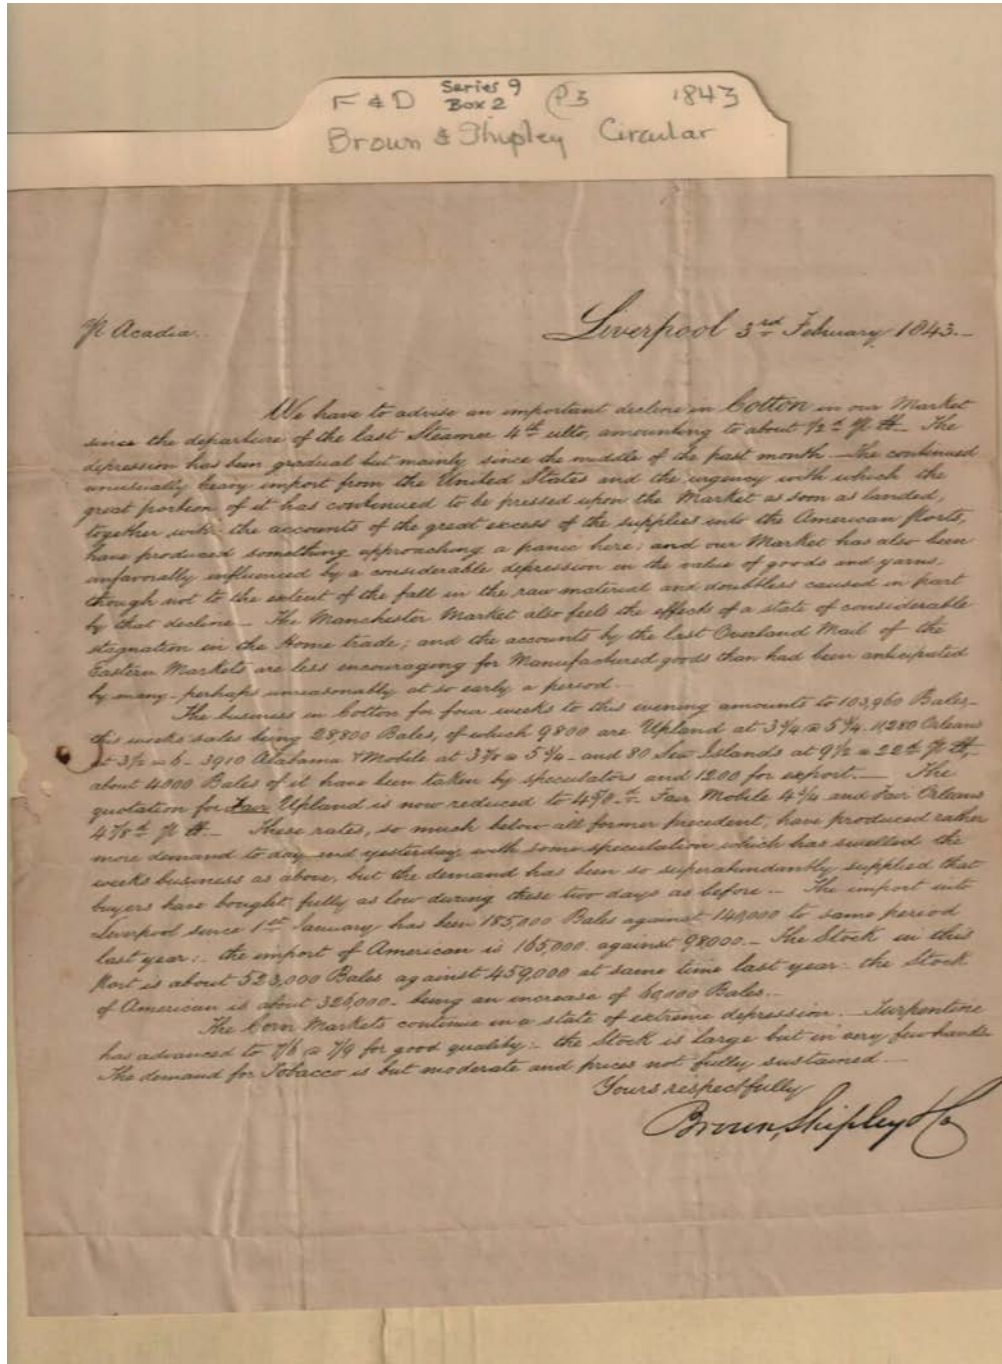 F & D Series 9 Box 2 P3 1843
Brown & Shipley Circular
Pr Acadia.
Liverpool 3rd February 1843.
We have to advise an important decline in Cotton in our Market
since the departure of the last Steamer 4th ulto, amounting to about 1/2d pr lb. The
depression has been gradual but mainly since the middle of the past month. The continued
unusually heavy import from the United States and the urgency with which the
great portion of it has continued to be pressed upon the Market as soon as landed,
together with the accounts of the great excess of the supplies into the American Ports,
have produced something approaching a panic here; and our Market has also been
unfavorably influenced by a considerable depression in the value of goods and yarns,
though not to the extent of the fall in the raw material and doubtless caused in part
by that decline. The Manchester Market also feels the effects of a state of considerable
stagnation in the Home trade; and the accounts by the last Overland Mail of the
Eastern Markets are less encouraging for Manufactured goods than had been anticipated
by many perhaps unreasonably at so early a period.
The business in Cotton for four weeks to this evening amounts to 103,960 Bales,
this weeks sales being 28,800 Bales, of which 9800 are Upland at 3 3/4 @ 5 3/4. 11,280 Orleans
at 3 1/2 @ 6 - 3910 Alabama & Mobile at 3 7/8 @ 5 3/4 - and 80 Sea Islands at 9 1/2 @ 22d pr lb,
about 4000 Bales of it have been taken by speculators and 1200 for export. The
quotation for Fair Upland is now reduced to 4 5/8d. Fair Mobile 4 3/4 and Fair Orleans
4 7/8d pr lb. These rates, so much below all former precedent, have produced rather
more demand to day and yesterday with some speculation which has swelled the
weeks business as above, but the demand has been so superabundantly supplied that
buyers have bought fully as low during these two days as before. The import into
Liverpool since 1st January has been 185,000 Bales against 140,000 to same period
last year: the import of American is 165,000 against 98,000. The Stock in this
Port is about 523,000 Bales against 459,000 at same time last year: the Stock
of American is about 326,000 being an increase of 60,000 Bales.
The Corn Markets continue in a state of extreme depression. Turpentine
has advanced to 7/6 @ 7/9 for good quality: the Stock is large but in very few hands.
The demand for Tobacco is but moderate and prices not fully sustained.
Yours respectfully
Brown, Shipley & Co